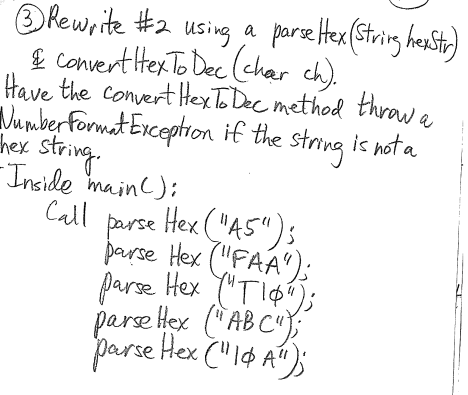 ③ Rewrite #2 using a parseHex(String hexStr)
& convertHexToDec(char ch).
Have the convertHexToDec method throw a
NumberFormatException if the string is not a
hex string.
Inside main():
Call parseHex("A5");
parseHex("FAA");
parseHex("T1Ø");
parseHex("ABC");
parseHex("1ØA");